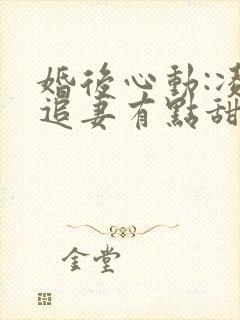 婚後心動:
追妻有點甜
金堂